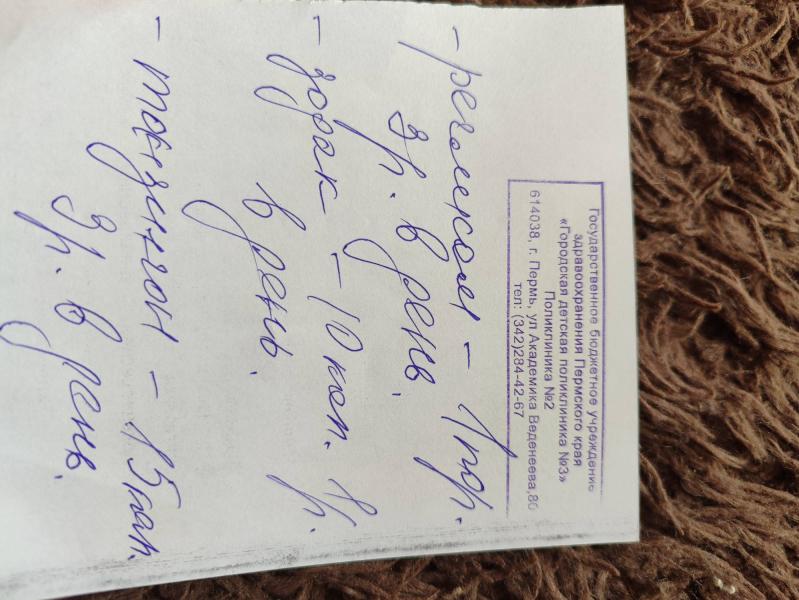 Государственное бюджетное учреждение
здравоохранения Пермского края
«Городская детская поликлиника №3»
Поликлиника №2
614038, г. Пермь, ул.Академика Веденеева,80
тел: (342)284-42-67
- регидкол - 1 пор.
3р. в день.
- зодак - 10 кап. 1 р.
в день.
- тонзилгон - 15 кап.
3р. в день.